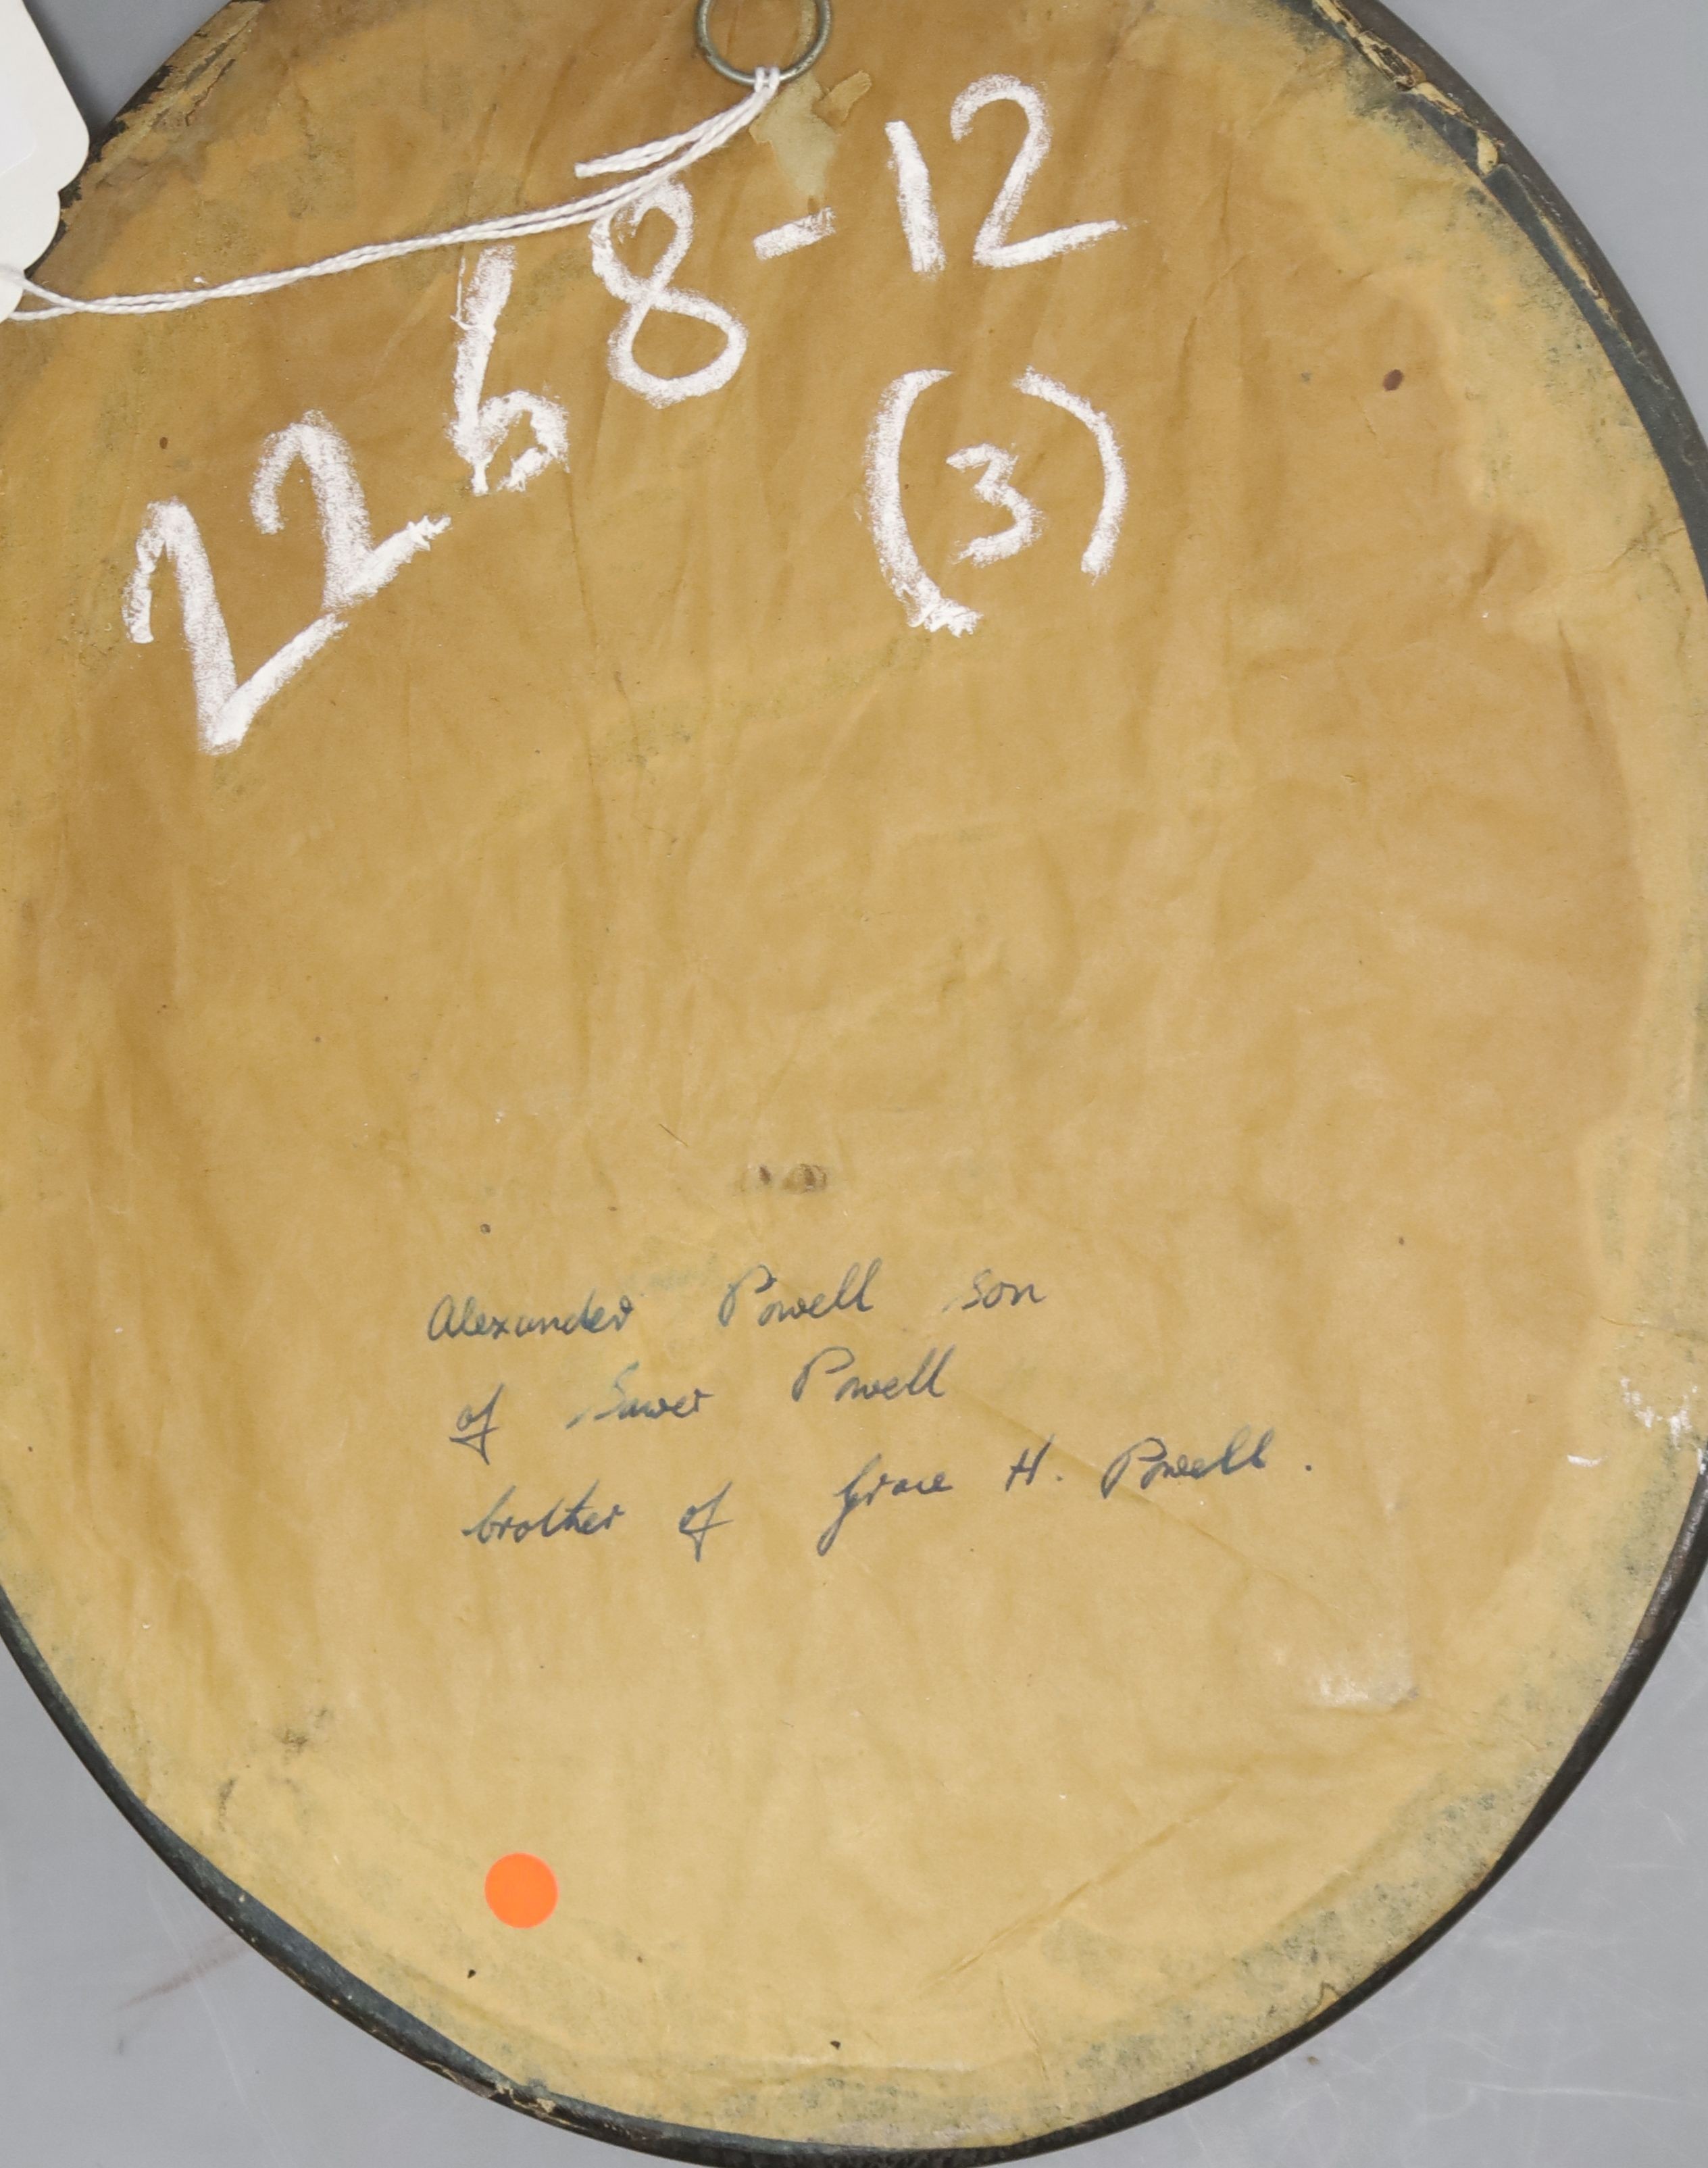 2268-12
(3)
Alexander Powell son
of Sawer Powell
brother of Grace H. Powell.